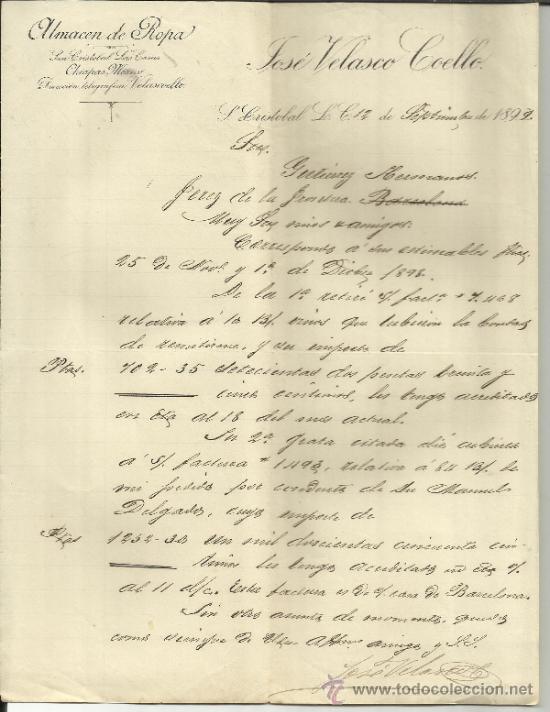 Almacen de Ropa
San Cristobal Las Casas
Chiapas, Mexico
Direccion telegrafica Velascoello.
José Velasco Coello.
S. Cristobal L. C. 12 de Septiembre de 189
Sres.
Gutierrez Hermanos.
Jerez de la Frontera Barcelona
Muy Sres mios & amigos:
Correspondo á sus estimables
25 de Novb. y 1º de Dicbre 1898.
De la 1ª retiré factª 7.468
relativa á 10 vinos que tubieron la bondad
de remitirme, y su importe de
Ptas. 702-35 setecientas dos pesetas treinta y
cinco centimos, les tengo acreditado
en Cta al 18 del mes actual.
Su 2ª grata citada
á S/ factura 1493, relativa á
mi pedido por conducto de Dn Manuel
Delgado, cuyo importe de
Ptas 1252-30 un mil doscientas cincuenta
les tengo acreditado en Cta
al 11 d/c. Esta factura es de casa de Barcelona.
Sin otro asunto de momento, quedo
como siempre de Uds. Affmo amigo y S.S.
José Velasco C
www.todocoleccion.net